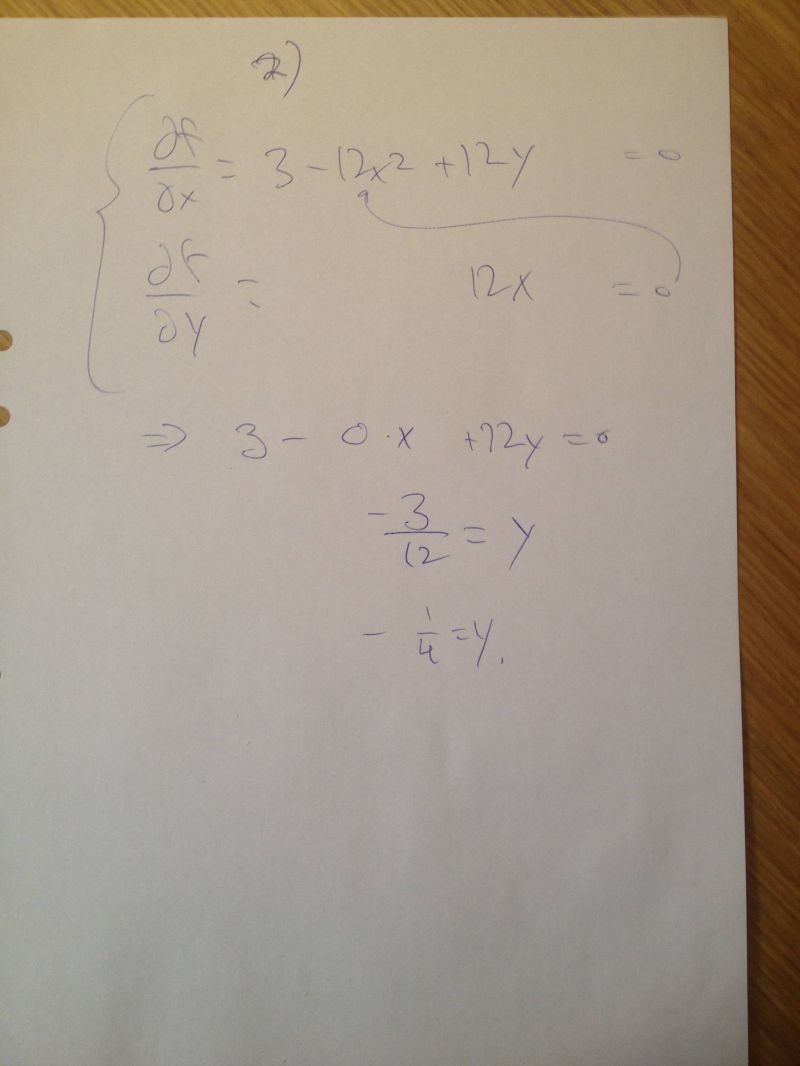 2)
∂f/∂x = 3 - 12x² + 12y = 0
∂f/∂y = 12x = 0
⇒ 3 - 0·x + 12y = 0
-3/12 = y
- 1/4 = y.